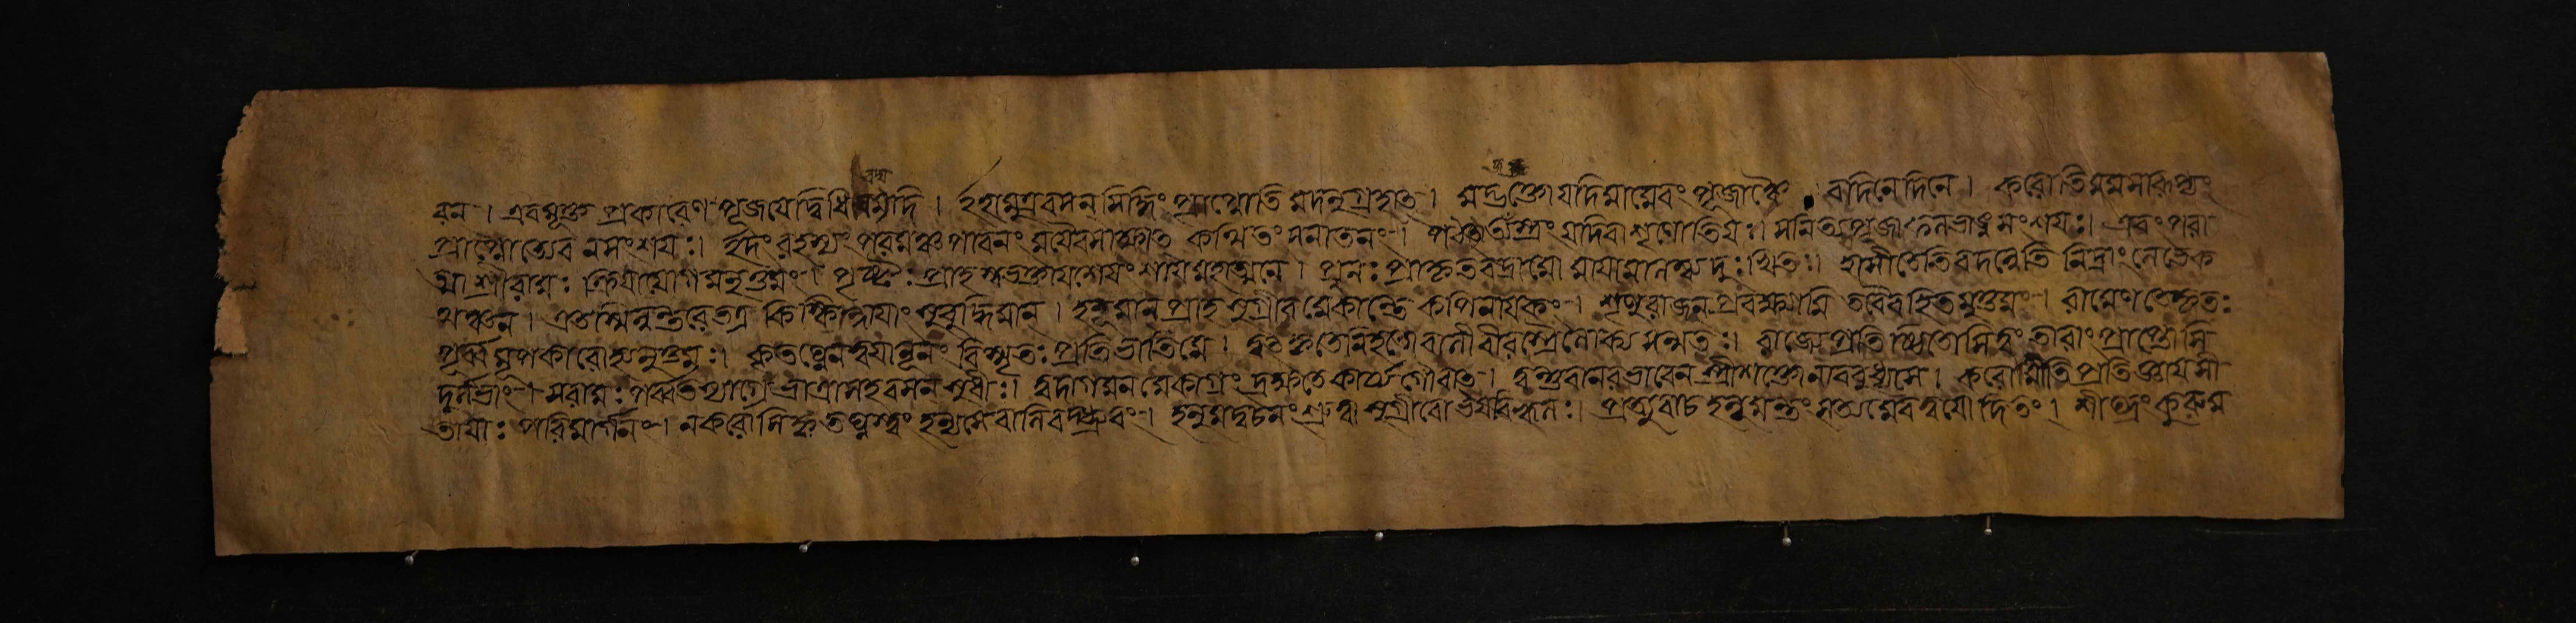 বন । এবমুক্তপ্রকারেণ পূজয়েদ্বিধিবদ্যদি । ইহামুত্রবসন্ সিদ্ধিং প্রাপ্নোতি মদনুগ্রহাত্ । মদ্ভক্তো যদিমামেবং পূজাঞ্চৈ বদিনেদিনে । করোতিমমসারূপ্যং
প্রাপ্নোত্যেব নসংশয়ঃ। ইদং রহস্যং পরমঞ্চ পাবনং ময়ৈবসাক্ষাত্ কথিতং সনাতনং । পঠত্যজস্রং যদিবা শৃণোতিয়ঃ। সনিত্যপূজাফলভাঙ্নসংশয়ঃ। এবং পরা
ত্মা শ্রীরামঃ ক্রিয়াযোগমনুত্তমং । পৃষ্টঃ প্রাহ স্বভক্তায়শেষাংশায়মহাত্মনে । পুনঃ প্রাকৃতবদ্রামো মায়ামালম্ব্যদুঃখিতঃ। হাসীতেতিবদন্নেতি নিদ্রাং লেভেক
থঞ্চন । এতস্মিন্নন্তরেতত্র কিষ্কিন্ধায়াং সুবুদ্ধিমান্ । হনূমান্ প্রাহ সুগ্রীবমেকান্তে কপিনায়কং । শৃণুরাজন্ প্রবক্ষ্যামি তবৈবহিতমুত্তমং । রামেণতেকৃতঃ
পূর্ব্বমুপকারোহ্যনুত্তমঃ। কৃতঘ্নেনত্বয়ানূনং বিস্মৃতঃ প্রতিভাতিমে । ত্বত্কৃতেনিহতো বালী বীরস্ত্রৈলোক্যসম্মতঃ। রাজ্যে প্রতিষ্ঠিতোসিত্বং তারাং প্রাপ্তোসি
দুর্লভাং । সরামঃ পর্ব্বতস্যাগ্রে ভ্রাত্রাসহবসন্ সুধীঃ। ত্বদাগমনমেকাগ্রং দ্রক্ষতে কার্য্যগৌরবাত্ । ত্বন্তুবানরভাবেন স্ত্রীশক্তোনাববুধ্যসে । করোমীতি প্রতিজ্ঞায়সী
তায়াঃ পারিমার্গনং । নকরোসিকৃতঘ্নস্ত্বং হন্যসেবালিবদ্ধ্রুবং । হনুমদ্বচনং শ্রুত্বা সুগ্রীবো ভয়বিহ্বলঃ। প্রত্যুবাচ হনুমন্তং সত্যমেবত্বয়োদিতং । শীঘ্রং কুরুম